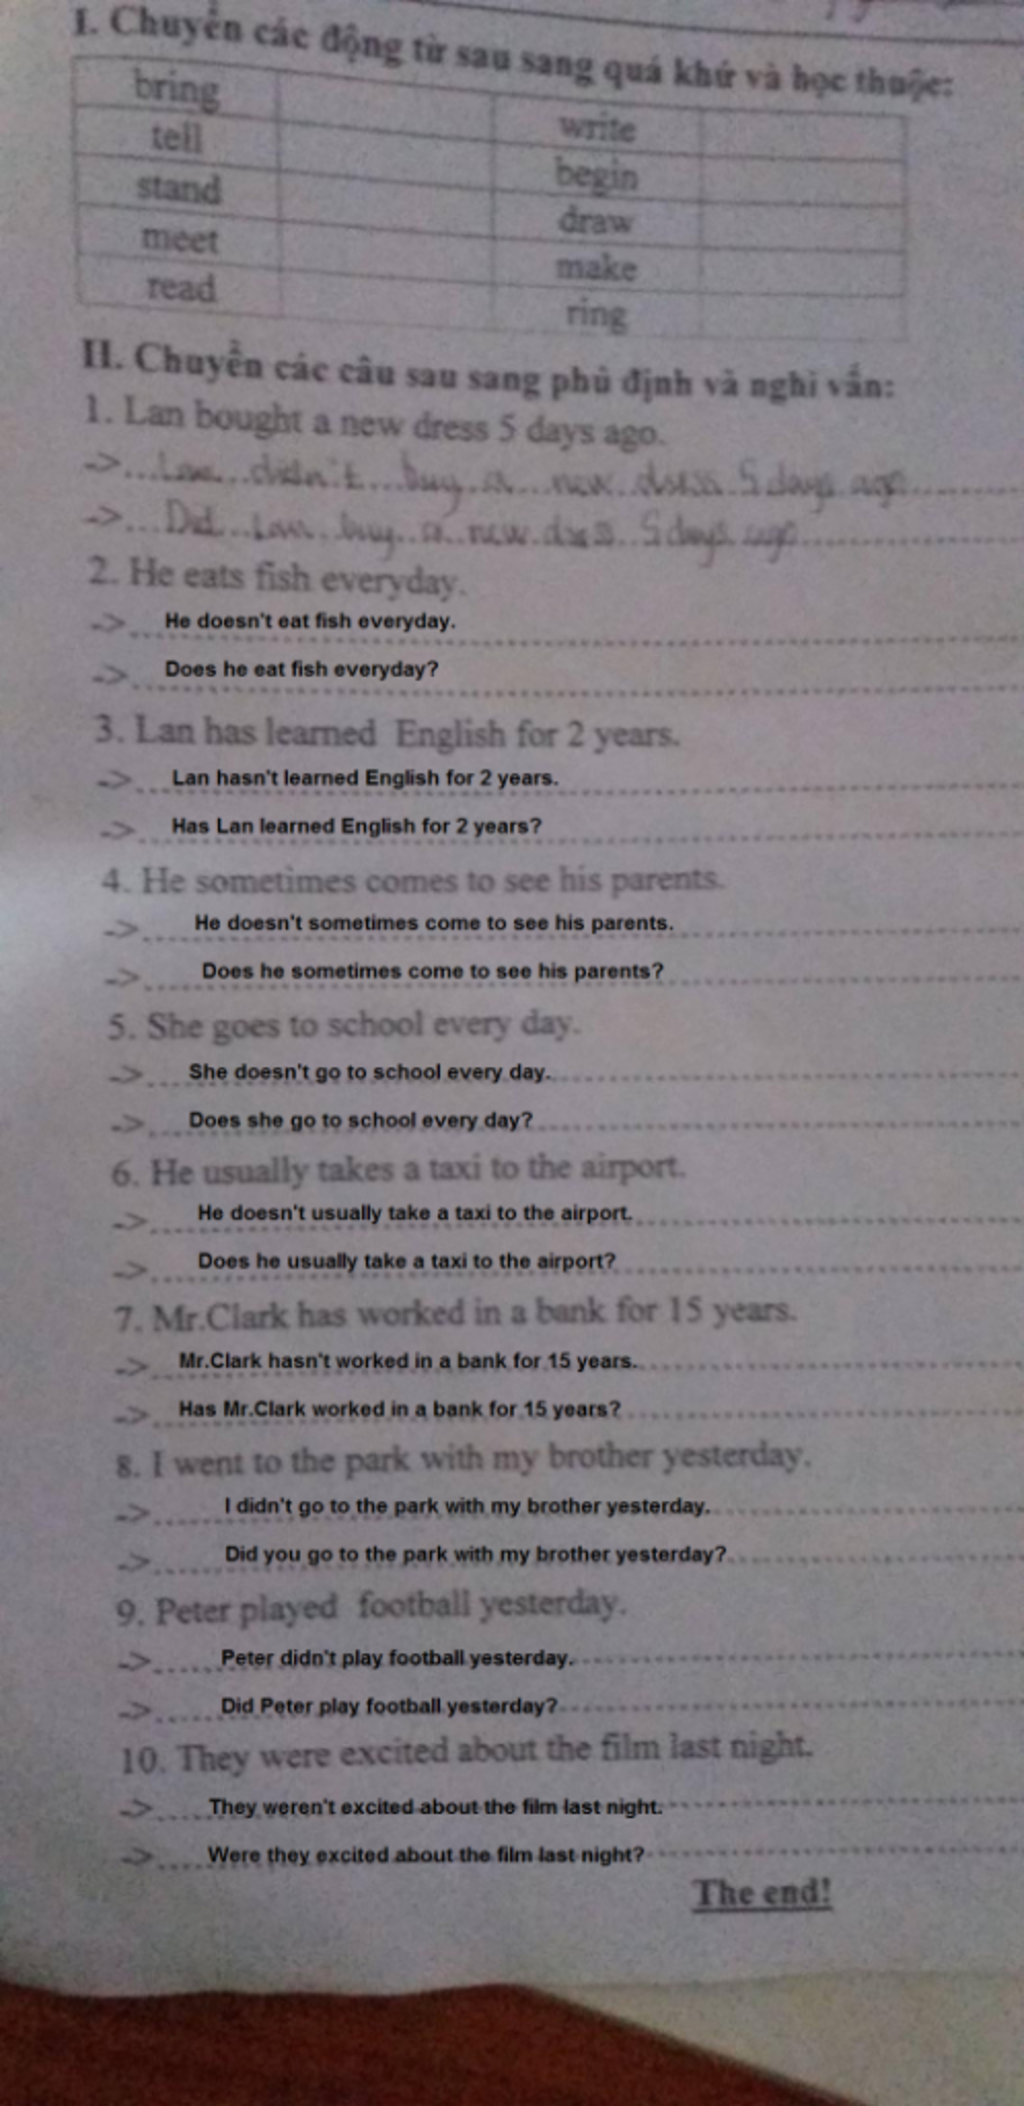 I. Chuyển các động từ sau sang quá khứ và học thuộc:
bring write
tell begin
stand draw
meet make
read ring
II. Chuyển các câu sau sang phủ định và nghi vấn:
1. Lan bought a new dress 5 days ago.
->...Lan...didn't...buy..a...new..dress..5 days ago
->...Did...Lan..buy..a..new.dress..5 days ago
2. He eats fish everyday.
-> He doesn't eat fish everyday.
-> Does he eat fish everyday?
3. Lan has learned English for 2 years.
-> Lan hasn't learned English for 2 years.
-> Has Lan learned English for 2 years?
4. He sometimes comes to see his parents.
-> He doesn't sometimes come to see his parents.
-> Does he sometimes come to see his parents?
5. She goes to school every day.
-> She doesn't go to school every day.
-> Does she go to school every day?
6. He usually takes a taxi to the airport.
-> He doesn't usually take a taxi to the airport.
-> Does he usually take a taxi to the airport?
7. Mr.Clark has worked in a bank for 15 years.
-> Mr.Clark hasn't worked in a bank for 15 years.
-> Has Mr.Clark worked in a bank for 15 years?
8. I went to the park with my brother yesterday.
-> I didn't go to the park with my brother yesterday.
-> Did you go to the park with my brother yesterday?
9. Peter played football yesterday.
-> Peter didn't play football yesterday.
-> Did Peter play football yesterday?
10. They were excited about the film last night.
-> They weren't excited about the film last night.
-> Were they excited about the film last night?
The end!